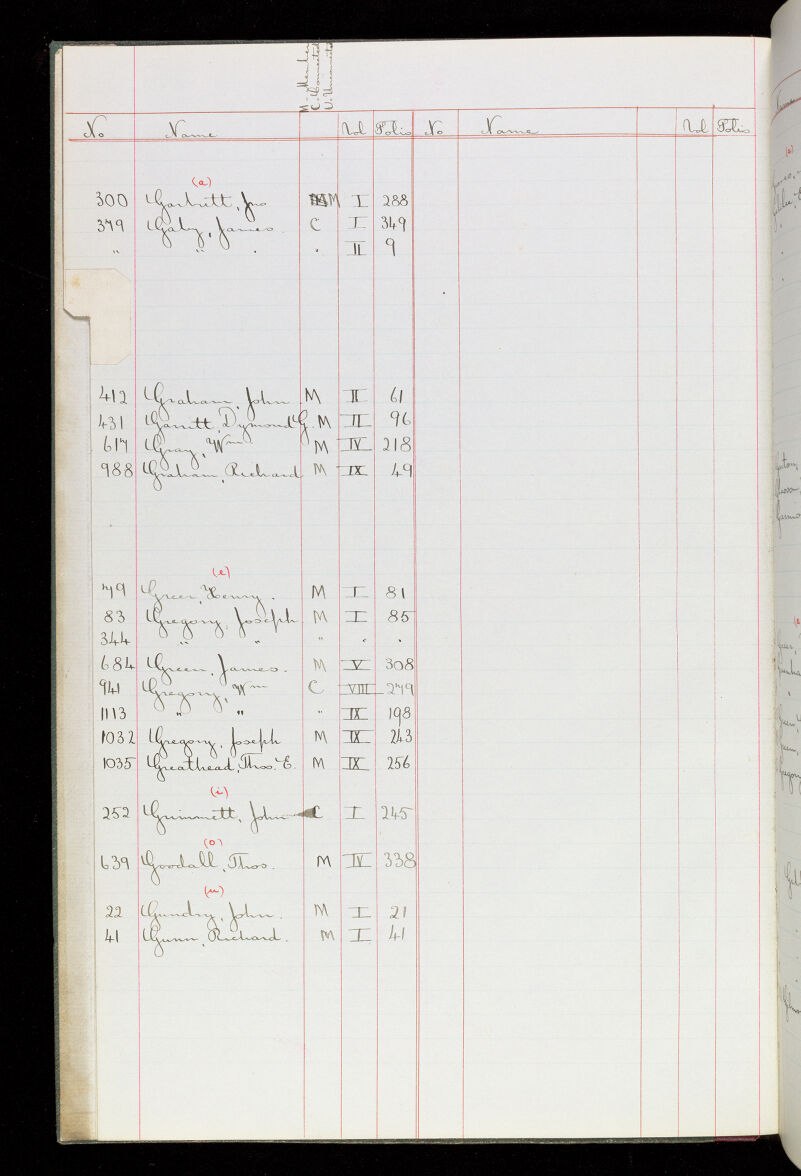 M. Member
C. Connected
U. Unconnected
No Name Vol Folio No Name Vol Folio
(a)
300 Garbutt, Jno M I 288
379 Gaby, James. C I 349
" " . " II 9
412 Graham, John M II 61
431 Garritt, Dymond G. M II 96
617 Gray, Wm M IV 218
988 Graham, Richard M IX 49
(e)
79 Greer, Henry. M I 81
83 Gregory, Joseph M I 85
344 " " " " "
684 Green, James. M V 308
941 Gregory, Wm C VIII 279
1113 " " " IX 198
1032 Gregory, Joseph M IX 243
1035 Greathead, Thos. E. M IX 256
(i)
252 Grimmett, John C I 245
(o)
639 Goodall, Thos. M IV 338
(u)
22 Gundry, John. M I 21
41 Gunn, Richard. M I 41